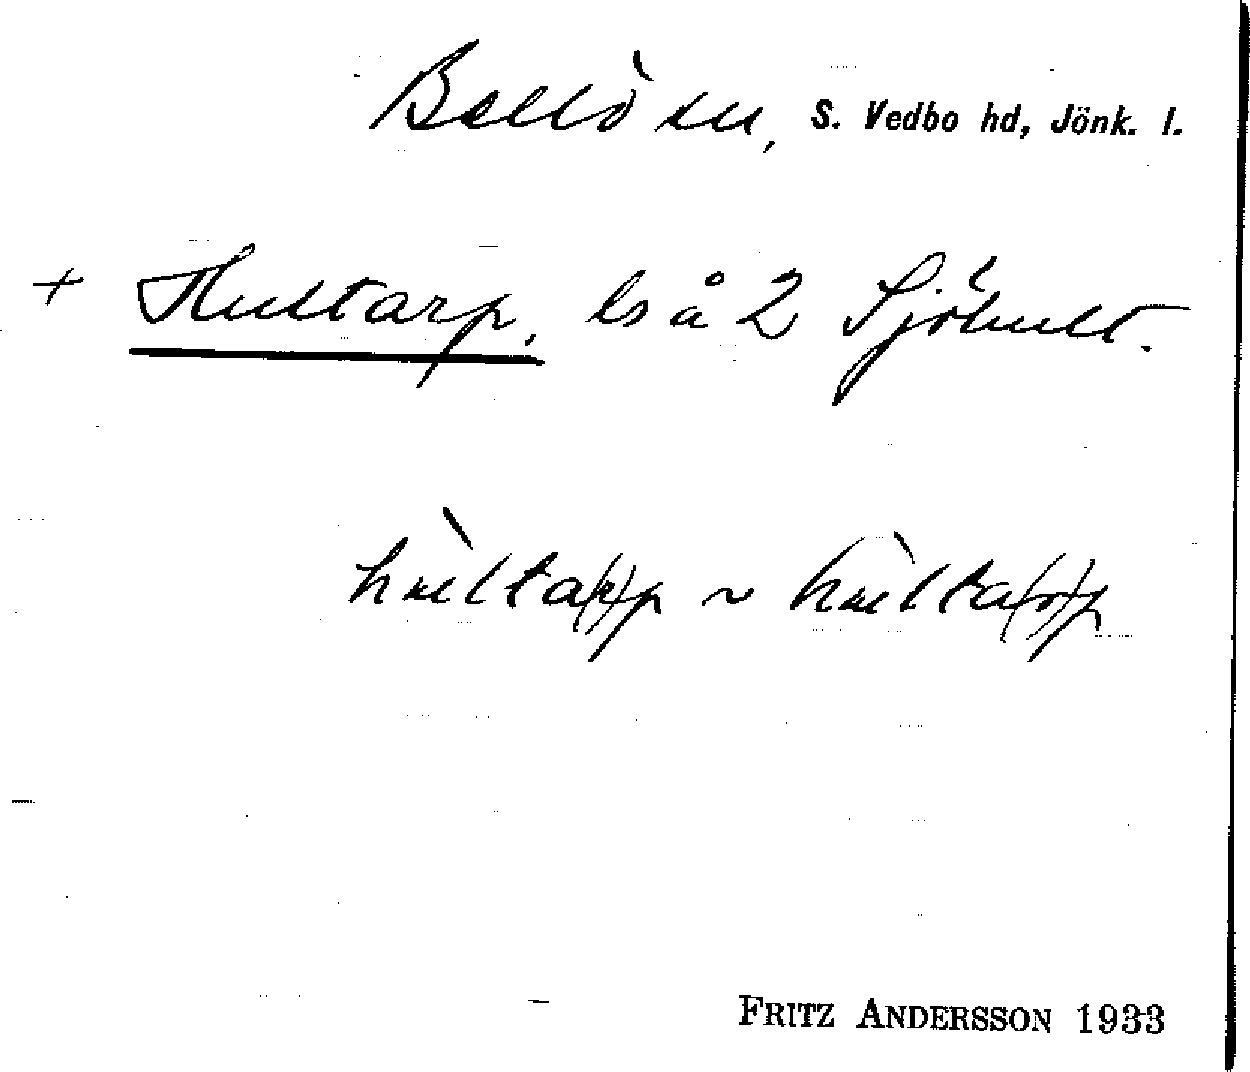 Bellö sn, S. Vedbo hd, Jönk. l.
+ Hultarp, ls å 2 Sjöhult.
hùlta(r)p ~ hùlta(r)p
FRITZ ANDERSSON 1933